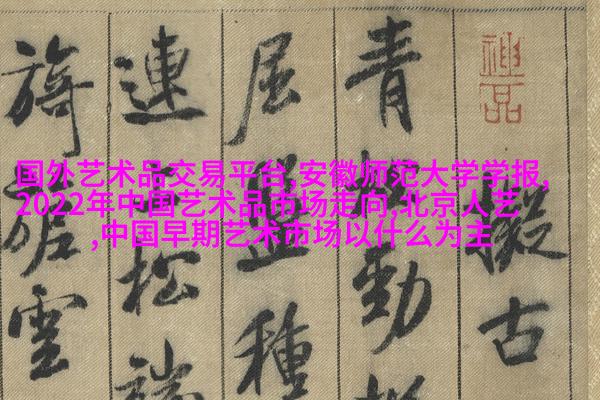 国外艺术品交易平台,安徽师范大学学报,
2022年中国艺术品市场走向,北京人艺
,中国早期艺术市场以什么为主
神品
擬古
青松勁
屈盤種
連上松端
旖旎雲